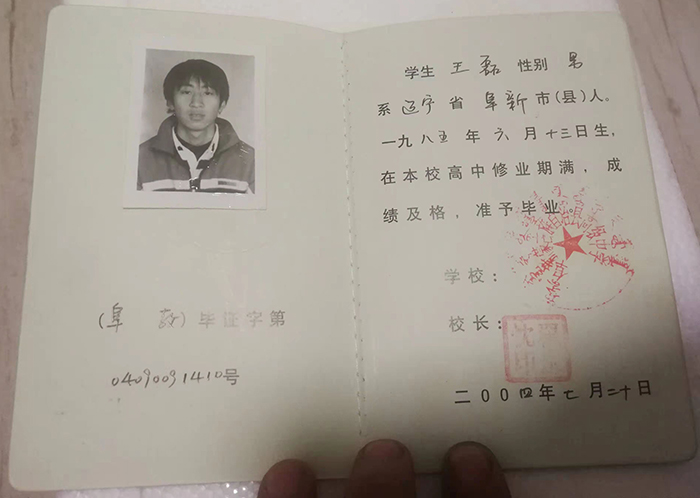 (阜 教) 毕证字第
04090091410号
学生 王磊 性别 男
系 辽宁 省 阜新 市(县)人。
一九八五 年 六 月 十三日生,
在本校高中修业期满,成
绩及格,准予毕业。
学校:
校长:
二00四年七月二十日